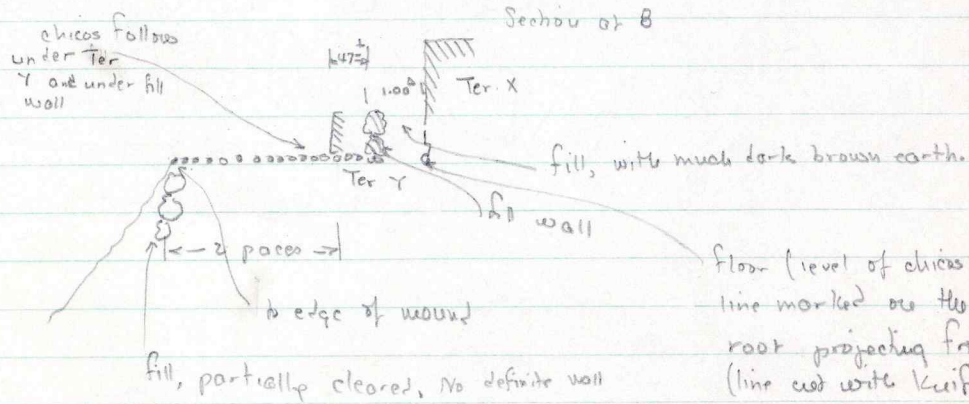 Section at B
chicos follows
under Ter
Y and under fill
wall
.47±
1.00±
Ter. X
fill, with much dark brown earth.
Ter Y
fill wall
2 paces
to edge of mound
fill, partially cleared, No definite wall
floor (level of chicos
line marked on the
root projecting
(line cut with